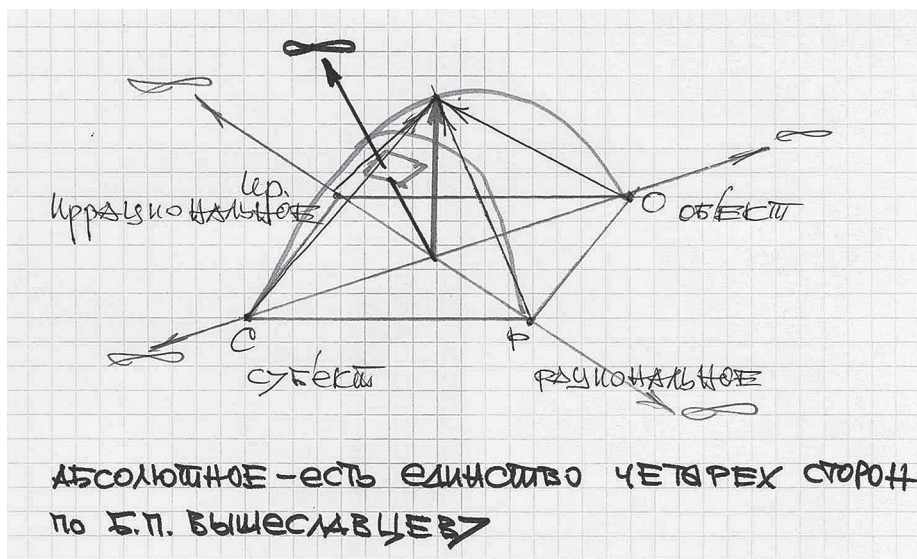 Ир.
Иррациональное
О объект
С
Р
субъект
рациональное
Абсолютное – есть единство четарех сторон
по Б.П. Вышеславцеву